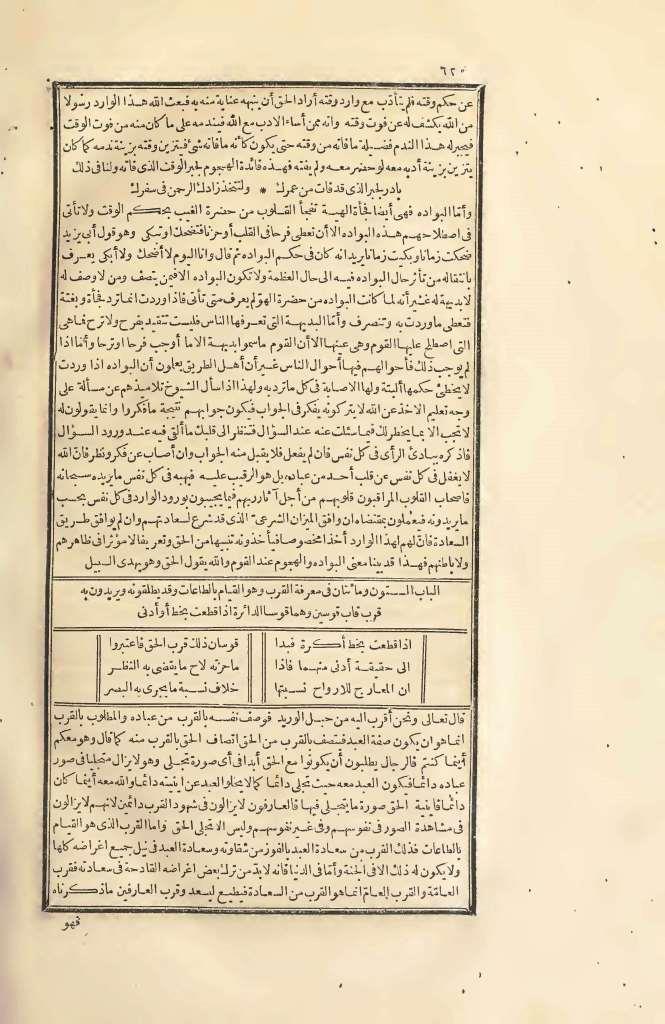 ٦٢٠
عن حكم وقته فلم يتأدب مع وارد وقته أراد الحق أن ينبهه عناية منه به فبعث الله هذا الوارد رسولا
من الله يكشف له عن فوت وقته وانه ممن أساء الادب مع الله فيندمه على ما كان منه من فوت الوقت
فيجبر له هذا الندم فضيلة ما فاته من وقته حتى يكون كأنه ما فاته شئ فيتزين وقته بزينة ندمه كما كان
يتزين بزينة أدبه معه لو حضر معه ولم يفته فهذه فائدة الهجوم لجبر الوقت الذى فاته ولنا فى ذلك
بادر لجبر الذى قد فات من عمرك * ولتتخذ زادك الرحمن فى سفرك
وأما البواده فهى أيضا فجأة الهية تفجأ القلوب من حضرة الغيب بحكم الوقت ولا تأتى
فى اصطلاحهم هذه البواده الا أن تعطى فرحا فى القلب أو حزنا فتضحك أو تبكى وهو قول أبى يزيد
ضحكت زمانا وبكيت زمانا يريد انه كان فى حكم البواده ثم قال وانا اليوم لا أضحك ولا أبكى يعرف
بانتقاله من تأثر حال البواده فيه الى حال العظمة ولا تكون البواده الا فيمن يتصف ومن لا وصف له
لا بديهة له غير أنه لما كانت البواده من حضرة الهو لم يعرف متى تأتى فاذا وردت انما ترد فجأة وبغتة
فتعطى ما وردت به وتنصرف وأما البديهة التى تعرفها الناس فليست تتقيد بفرح ولا ترح فما هى
التى اصطلح عليها القوم وهى عنها الا أن القوم ما سموا بديهة الا ما أوجب فرحا أو ترحا وأما اذا
لم يوجب ذلك فأحوالهم فيها أحوال الناس غير أن أهل الطريق يعلمون أن البواده اذا وردت
لا يخطئ حكمها ألبتة ولها الاصابة فى كل ما ترد به ولهذا اذا سأل الشيوخ تلامذهم عن مسألة على
وجه تعليم الاخذ عن الله لا يتركونه يفكر فى الجواب فيكون جوابهم نتيجة ما فكروا وانما يقولون له
لا تجب الا بما يخطر لك فيما سئلت عنه عند السؤال فتنظر الى قلبك ما ألقى فيه عند ورود السؤال
فاذكره ببادئ الرأى فى كل نفس فان لم يفعل فلا يقبل منه الجواب وان أصاب عن فكر ونظر فان الله
لا يغفل فى كل نفس عن قلب أحد من عباده بل هو الرقيب عليه فيهبه فى كل نفس ما يريده سبحانه
فاصحاب القلوب المراقبون قلوبهم من أجل آثار ربهم فيها يجيبون بورود الوارد فى كل نفس بحسب
ما يريدونه فيعملون بمقتضاه ان وافق الميزان الشرعى الذى قد شرع لسعادتهم وان لم يوافق طريق
السعادة فان لهم لهذا الوارد أخذا مخصوصا فيأخذونه تنبيها من الحق وتعريفا لا مؤثرا فى ظاهرهم
ولا باطنهم فهذا قد بينا معنى البواده والهجوم عند القوم والله يقول الحق وهو يهدى السبيل
الباب الستون ومائتان فى معرفة القرب وهو القيام بالطاعات وقد يطلقونه ويريدون به
قرب قاب قوسين وهما قوسا الدائرة اذا قطعت بخط أو أدنى
اذا قطعت بخط أكرة فبدا قوسان ذلك قرب الحق فاعتبروا
الى حقيقة أدنى منهما فاذا ما حزته لاح ما يقضى به النظر
ان المعارج للارواح نسبتها خلاف نسبة ما يجرى به البصر
قال تعالى ونحن أقرب اليه من حبل الوريد فوصف نفسه بالقرب من عباده والمطلوب بالقرب
انما هو ان يكون صفة العبد فيتصف بالقرب من الحق اتصاف الحق بالقرب منه كما قال وهو معكم
أينما كنتم فالرجال يطلبون أن يكونوا مع الحق أبدا فى أى صورة تجلى وهو لا يزال متجليا فى صور
عباده دائما فيكون العبد معه حيث تجلى دائما كما لا يخلو العبد عن اينيته دائما والله معه أينما كان
دائما فاينية الحق صورة ما يتجلى فيها فالعارفون لا يزالون فى شهود القرب دائمين لانهم لا يزالون
فى مشاهدة الصور فى نفوسهم وفى غير نفوسهم وليس الا تجلى الحق واما القرب الذى هو القيام
بالطاعات فذلك القرب من سعادة العبد بالفوز من شقاوته وسعادة العبد فى نيل جميع اغراضه كلها
ولا يكون له ذلك الا فى الجنة وأما فى الدنيا فانه لا بد من ترك بعض اغراضه القادحة فى سعادته فقرب
العامة والقرب العام انما هو القرب من السعادة فيطيع ليسعد وقرب العارفين ما ذكرناه
فهو